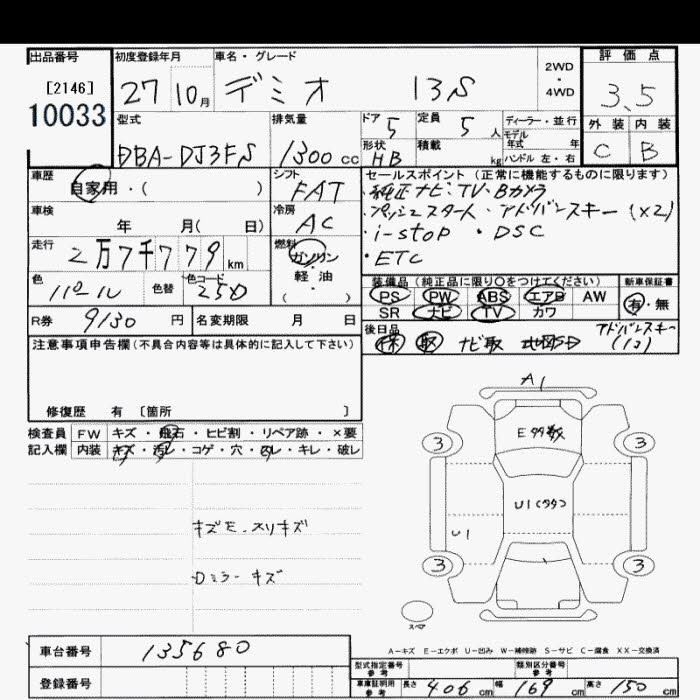 出品番号 初度登録年月 車名・グレード 評価点
[2146] 27 10月 デミオ 13S 2WD・4WD 3.5
10033
型式 排気量 ドア 5 定員 5人 ディーラー・並行 外装 内装
モデル年式 年
DBA-DJ3FS 1300cc 形状 HB 積載 kg ハンドル 左・右 C B
車歴 シフト セールスポイント (正常に機能するものに限ります)
自家用・( ) FAT ・純正ナビ・TV・Bカメラ
車検 冷房 ・プッシュスタート・アドバンスキー(x2)
年 月( 日) AC ・i-stop ・DSC
走行 燃料 ・ETC
2万7千779km ガソリン・軽油( )
色 色替 色コード 装備品 (純正品に限り○をつけてください) 新車保証書
パール 25D PS PW ABS エアB AW 有・無
SR ナビ TV カワ
R券 9130円 名変期限 月 日 後日品 アドバンスキー
保 取 ナビ取 (1コ)
注意事項申告欄(不具合内容等は具体的に記入して下さい)
修復歴 有 [箇所 ]
A1
検査員 FW キズ・飛石・ヒビ割・リペア跡・×要
記入欄 内装 キズ・汚レ・コゲ・穴・スレ・キレ・破レ
E多数
3 3
U1(多々)
キズE・スリキズ
U1
Dミラーキズ
3 3
スペア
A-キズ E-エクボ U-凹み W-補修跡 S-サビ C-腐食 XX-交換済
車台番号 135680 型式指定番号 参考 類別区分番号 参考
登録番号 車庫証明用 参考 長さ 406cm 幅 169cm 高さ 150cm